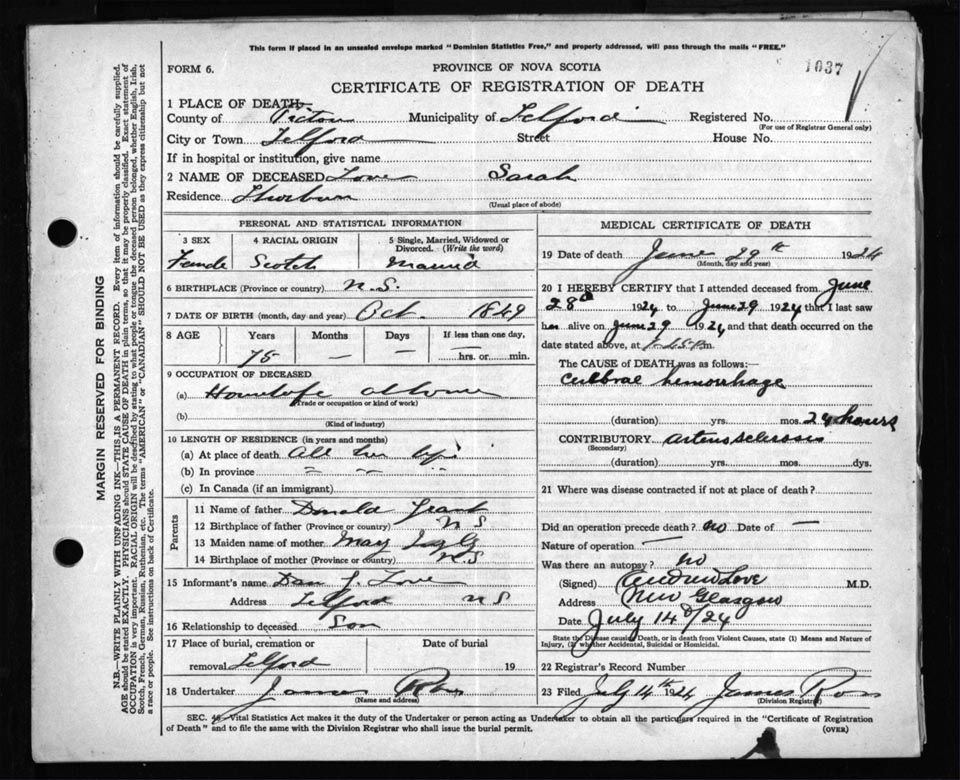 This form if placed in an unsealed envelope marked "Dominion Statistics Free," and properly addressed, will pass through the mails "FREE."
FORM 6.
PROVINCE OF NOVA SCOTIA
1037
CERTIFICATE OF REGISTRATION OF DEATH
1 PLACE OF DEATH
County of Pictou Municipality of Telford Registered No.
(For use of Registrar General only)
City or Town Telford Street House No.
If in hospital or institution, give name
2 NAME OF DECEASED Love Sarah
Residence Thorburn
(Usual place of abode)
PERSONAL AND STATISTICAL INFORMATION
3 SEX 4 RACIAL ORIGIN 5 Single, Married, Widowed or Divorced. (Write the word)
Female Scotch Married
6 BIRTHPLACE (Province or country) N.S.
7 DATE OF BIRTH (month, day and year) Oct. 1849
8 AGE Years Months Days If less than one day,
75 — — — hrs. or min.
9 OCCUPATION OF DECEASED
(a) at home
(Trade or occupation or kind of work)
(b)
(Kind of industry)
10 LENGTH OF RESIDENCE (in years and months)
(a) At place of death All her life
(b) In province " " "
(c) In Canada (if an immigrant)
Parents
11 Name of father Donald Grant
12 Birthplace of father (Province or country) N S
13 Maiden name of mother May
14 Birthplace of mother (Province or country) N.S
15 Informant's name Dan J. Love
Address Telford N S
16 Relationship to deceased Son
17 Place of burial, cremation or Date of burial
removal Telford 19
18 Undertaker James Ross
(Name and address)
MEDICAL CERTIFICATE OF DEATH
19 Date of death June 29th 1924
(Month, day and year)
20 I HEREBY CERTIFY that I attended deceased from June
28 1924 to June 29 1924 that I last saw
her alive on June 29 1924 and that death occurred on
date stated above, at 45 pm
The CAUSE OF DEATH was as follows:—
hemorrhage
(duration) yrs. mos. 24 hours
CONTRIBUTORY
(Secondary)
(duration) yrs. mos. dys.
21 Where was disease contracted if not at place of death?
Did an operation precede death? no Date of —
Nature of operation —
Was there an autopsy? no
(Signed) Andrew Love M.D.
Address New Glasgow
Date July 14/24
State the Disease causing Death, or in death from Violent Causes, state (1) Means and Nature of
Injury, (2) whether Accidental, Suicidal or Homicidal.
22 Registrar's Record Number
23 Filed July 14th 1924 James Ross
(Division Registrar)
SEC. Vital Statistics Act makes it the duty of the Undertaker or person acting as Undertaker to obtain all the particulars required in the "Certificate of Registration
of Death" and to file the same with the Division Registrar who shall issue the burial permit. (OVER)
MARGIN RESERVED FOR BINDING
N.B.—WRITE PLAINLY WITH UNFADING INK—THIS IS A PERMANENT RECORD. Every item of information should be carefully supplied.
AGE should be stated EXACTLY. PHYSICIANS should STATE CAUSE OF DEATH in plain terms, so that it may be properly classified. Exact statement of
OCCUPATION is very important. RACIAL ORIGIN will be described by stating to what people or tongue the deceased person belonged, whether English, Irish,
Scotch, French, German, Russian, Ruthenian, etc. The terms "AMERICAN" or "CANADIAN" SHOULD NOT BE USED as they express citizenship but not
a race or people. See instructions on back of Certificate.